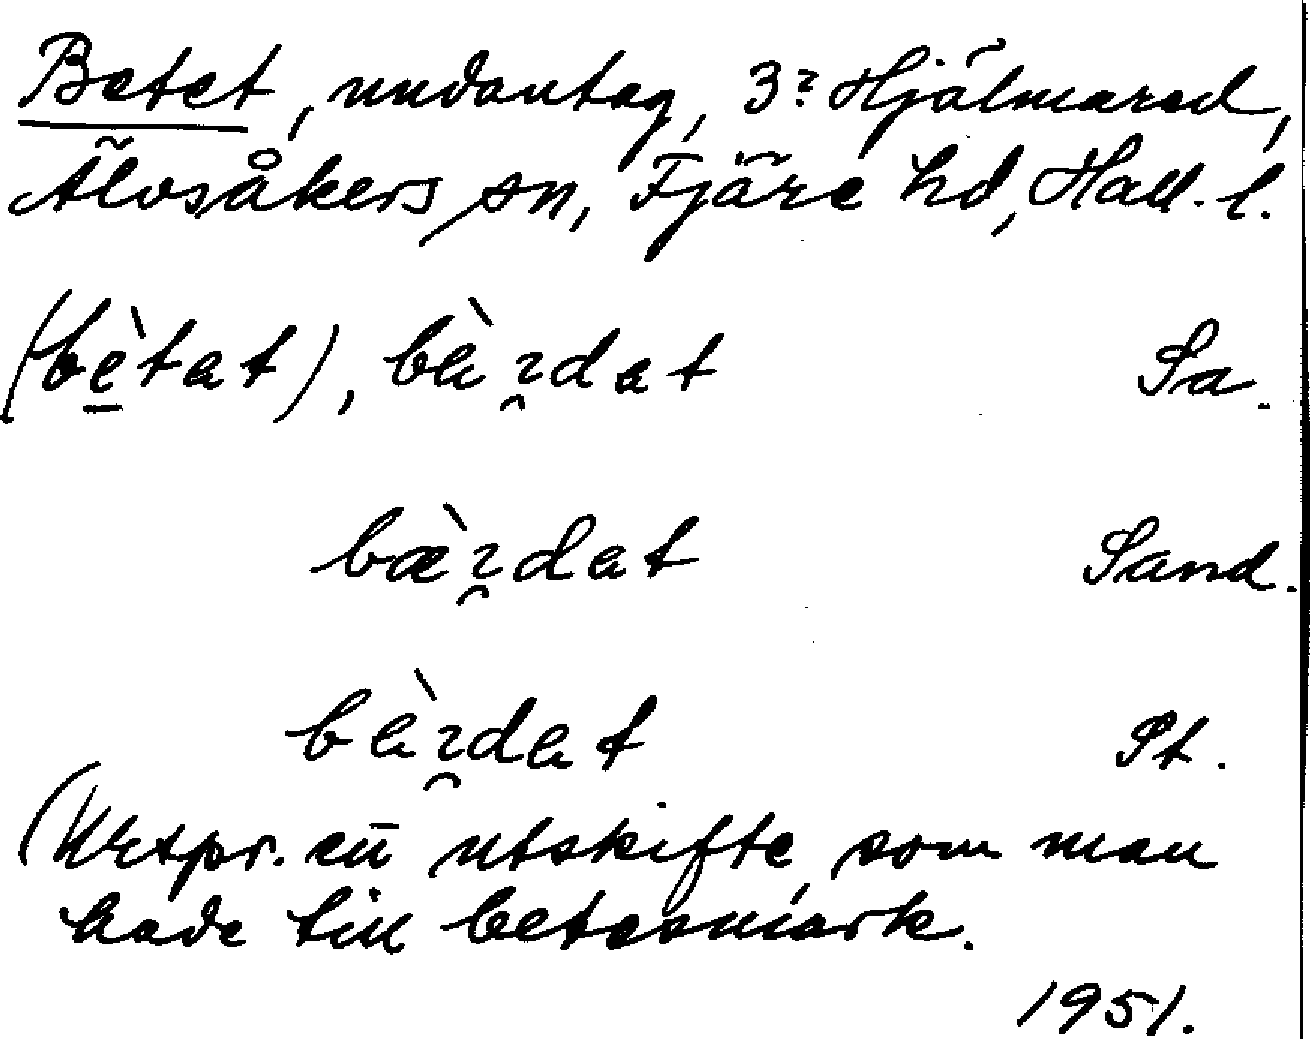 Betet, undantag, 3:2 Hjälmared,
Älvsåkers sn, Fjäre hd, Hall. l.
(bètat), bàɿ̯dat Sa.
bæ̀ɿ̯dat Sand.
bàɿ̯dat St.
(Urspr. en utskifte, som man
hade till betesmark.
1951.